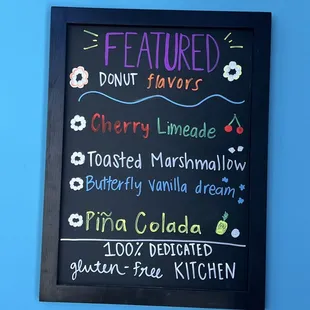 FEATURED
DONUT flavors
Cherry Limeade
Toasted Marshmallow
Butterfly vanilla dream
Piña Colada
100% DEDICATED
gluten-free KITCHEN